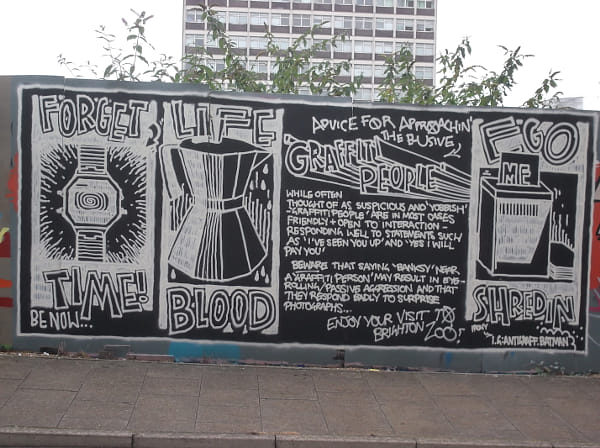 FORGET
TIME!
BE NOW...
LIFE
BLOOD
ADVICE FOR APPROACHIN'
THE ELUSIVE
'GRAFFITI
PEOPLE'
WHILE OFTEN
THOUGHT OF AS SUSPICIOUS AND 'YOBBISH'
- 'GRAFFITI PEOPLE' ARE IN MOST CASES
FRIENDLY + OPEN TO INTERACTION -
RESPONDING WELL TO STATEMENTS SUCH
AS 'I'VE SEEN YOU UP' AND 'YES I WILL
PAY YOU!
BEWARE THAT SAYING 'BANKSY' NEAR
A 'GRAFFITI PERSON' MAY RESULT IN EYE-
ROLLING/PASSIVE AGGRESSION AND THAT
THEY RESPOND BADLY TO SURPRISE
PHOTOGRAPHS...
ENJOY YOUR VISIT TO
BRIGHTON ZOO!
EGO
ME
SHREDIN
I.G: